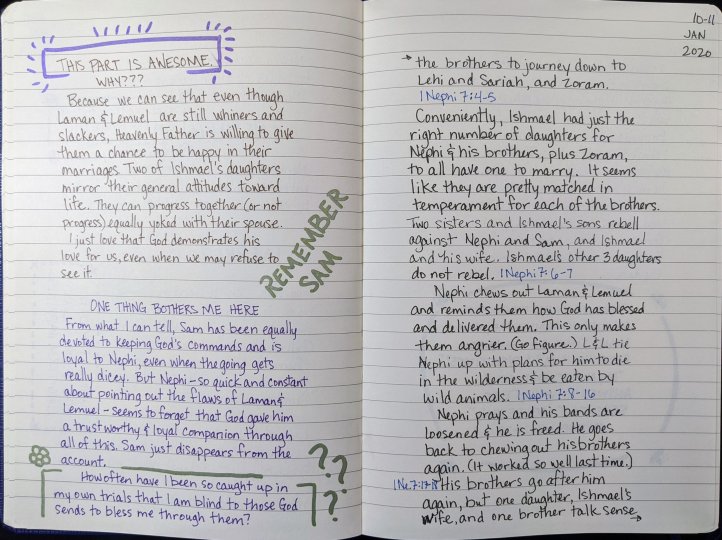 THIS PART IS AWESOME.
WHY???
Because we can see that even though
Laman & Lemuel are still whiners and
slackers, Heavenly Father is willing to give
them a chance to be happy in their
marriages. Two of Ishmael's daughters
mirror their general attitudes toward
life. They can progress together (or not
progress) equally yoked with their spouse.
I just love that God demonstrates his
love for us, even when we may refuse to
see it.
REMEMBER
SAM
ONE THING BOTHERS ME HERE
From what I can tell, Sam has been equally
devoted to keeping God's commands and is
loyal to Nephi, even when the going gets
really dicey. But Nephi - so quick and constant
about pointing out the flaws of Laman &
Lemuel - seems to forget that God gave him
a trustworthy & loyal companion through
all of this. Sam just disappears from the
account.
How often have I been so caught up in
my own trials that I am blind to those God
sends to bless me through them?
????
10-11
JAN
2020
→ the brothers to journey down to
Lehi and Sariah, and Zoram.
1 Nephi 7:4-5
Conveniently, Ishmael had just the
right number of daughters for
Nephi & his brothers, plus Zoram,
to all have one to marry. It seems
like they are pretty matched in
temperament for each of the brothers.
Two sisters and Ishmael's sons rebell
against Nephi and Sam, and Ishmael
and his wife. Ishmael's other 3 daughters
do not rebel. 1 Nephi 7:6-7
Nephi chews out Laman & Lemuel
and reminds them how God has blessed
and delivered them. This only makes
them angrier. (Go figure.) L&L tie
Nephi up with plans for him to die
in the wilderness & be eaten by
wild animals. 1 Nephi 7:8-16
Nephi prays and his bands are
loosened & he is freed. He goes
back to chewing out his brothers
again. (It worked so well last time.)
1 Ne. 7:17-18 His brothers go after him
again, but one daughter, Ishmael's
wife, and one brother talk sense →